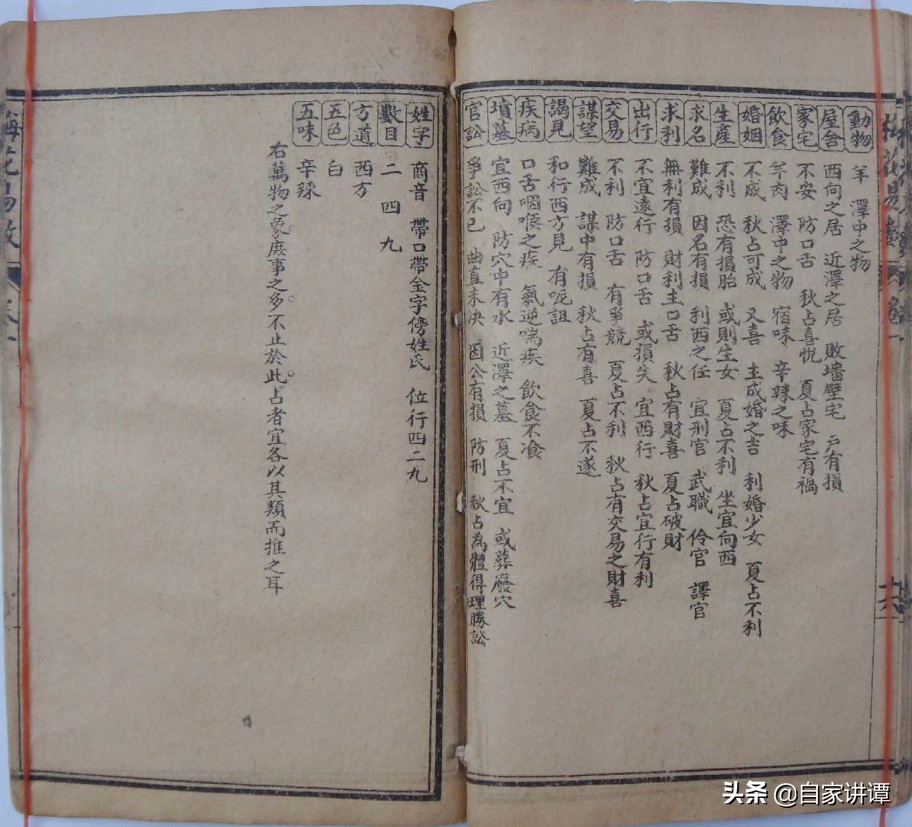 動物 羊 澤中之物
屋舍 西向之居 近澤之居 敗墻壁宅 戶有損
家宅 不安 防口舌 秋占喜悅 夏占家宅有禍
飲食 羊肉 澤中之物 宿味 辛辣之味
婚姻 不成 秋占可成 又喜 主成婚之吉 利婚少女 夏占不利
生產 不利 恐有損胎 或則生女 夏占不利 坐宜向西
求名 難成 因名有損 利西之任 宜刑官 武職 伶官 譯官
求利 無利有損 財利主口舌 秋占有財喜 夏占破財
出行 不宜遠行 防口舌 或損失 宜西行 秋占宜行有利
交易 不利 防口舌 有爭競 夏占不利 秋占有交易之財喜
謀望 難成 謀中有損 秋占有喜 夏占不遂
謁見 和行西方見 有呪詛
疾病 口舌咽喉之疾 氣逆喘疾 飲食不飡
墳墓 宜西向 防穴中有水 近澤之墓 夏占不宜 或葬廢穴
官訟 爭訟不已 曲直未決 因公有損 防刑 秋占為體得理勝訟
姓字 商音 帶口帶金字傍姓氏 位行四二九
數目 二 四 九
方道 西方
五色 白
五味 辛辣
右萬物之象庶事之多不止於此占者宜各以其類而推之耳
梅花易數
十六
头条 @自家讲谭